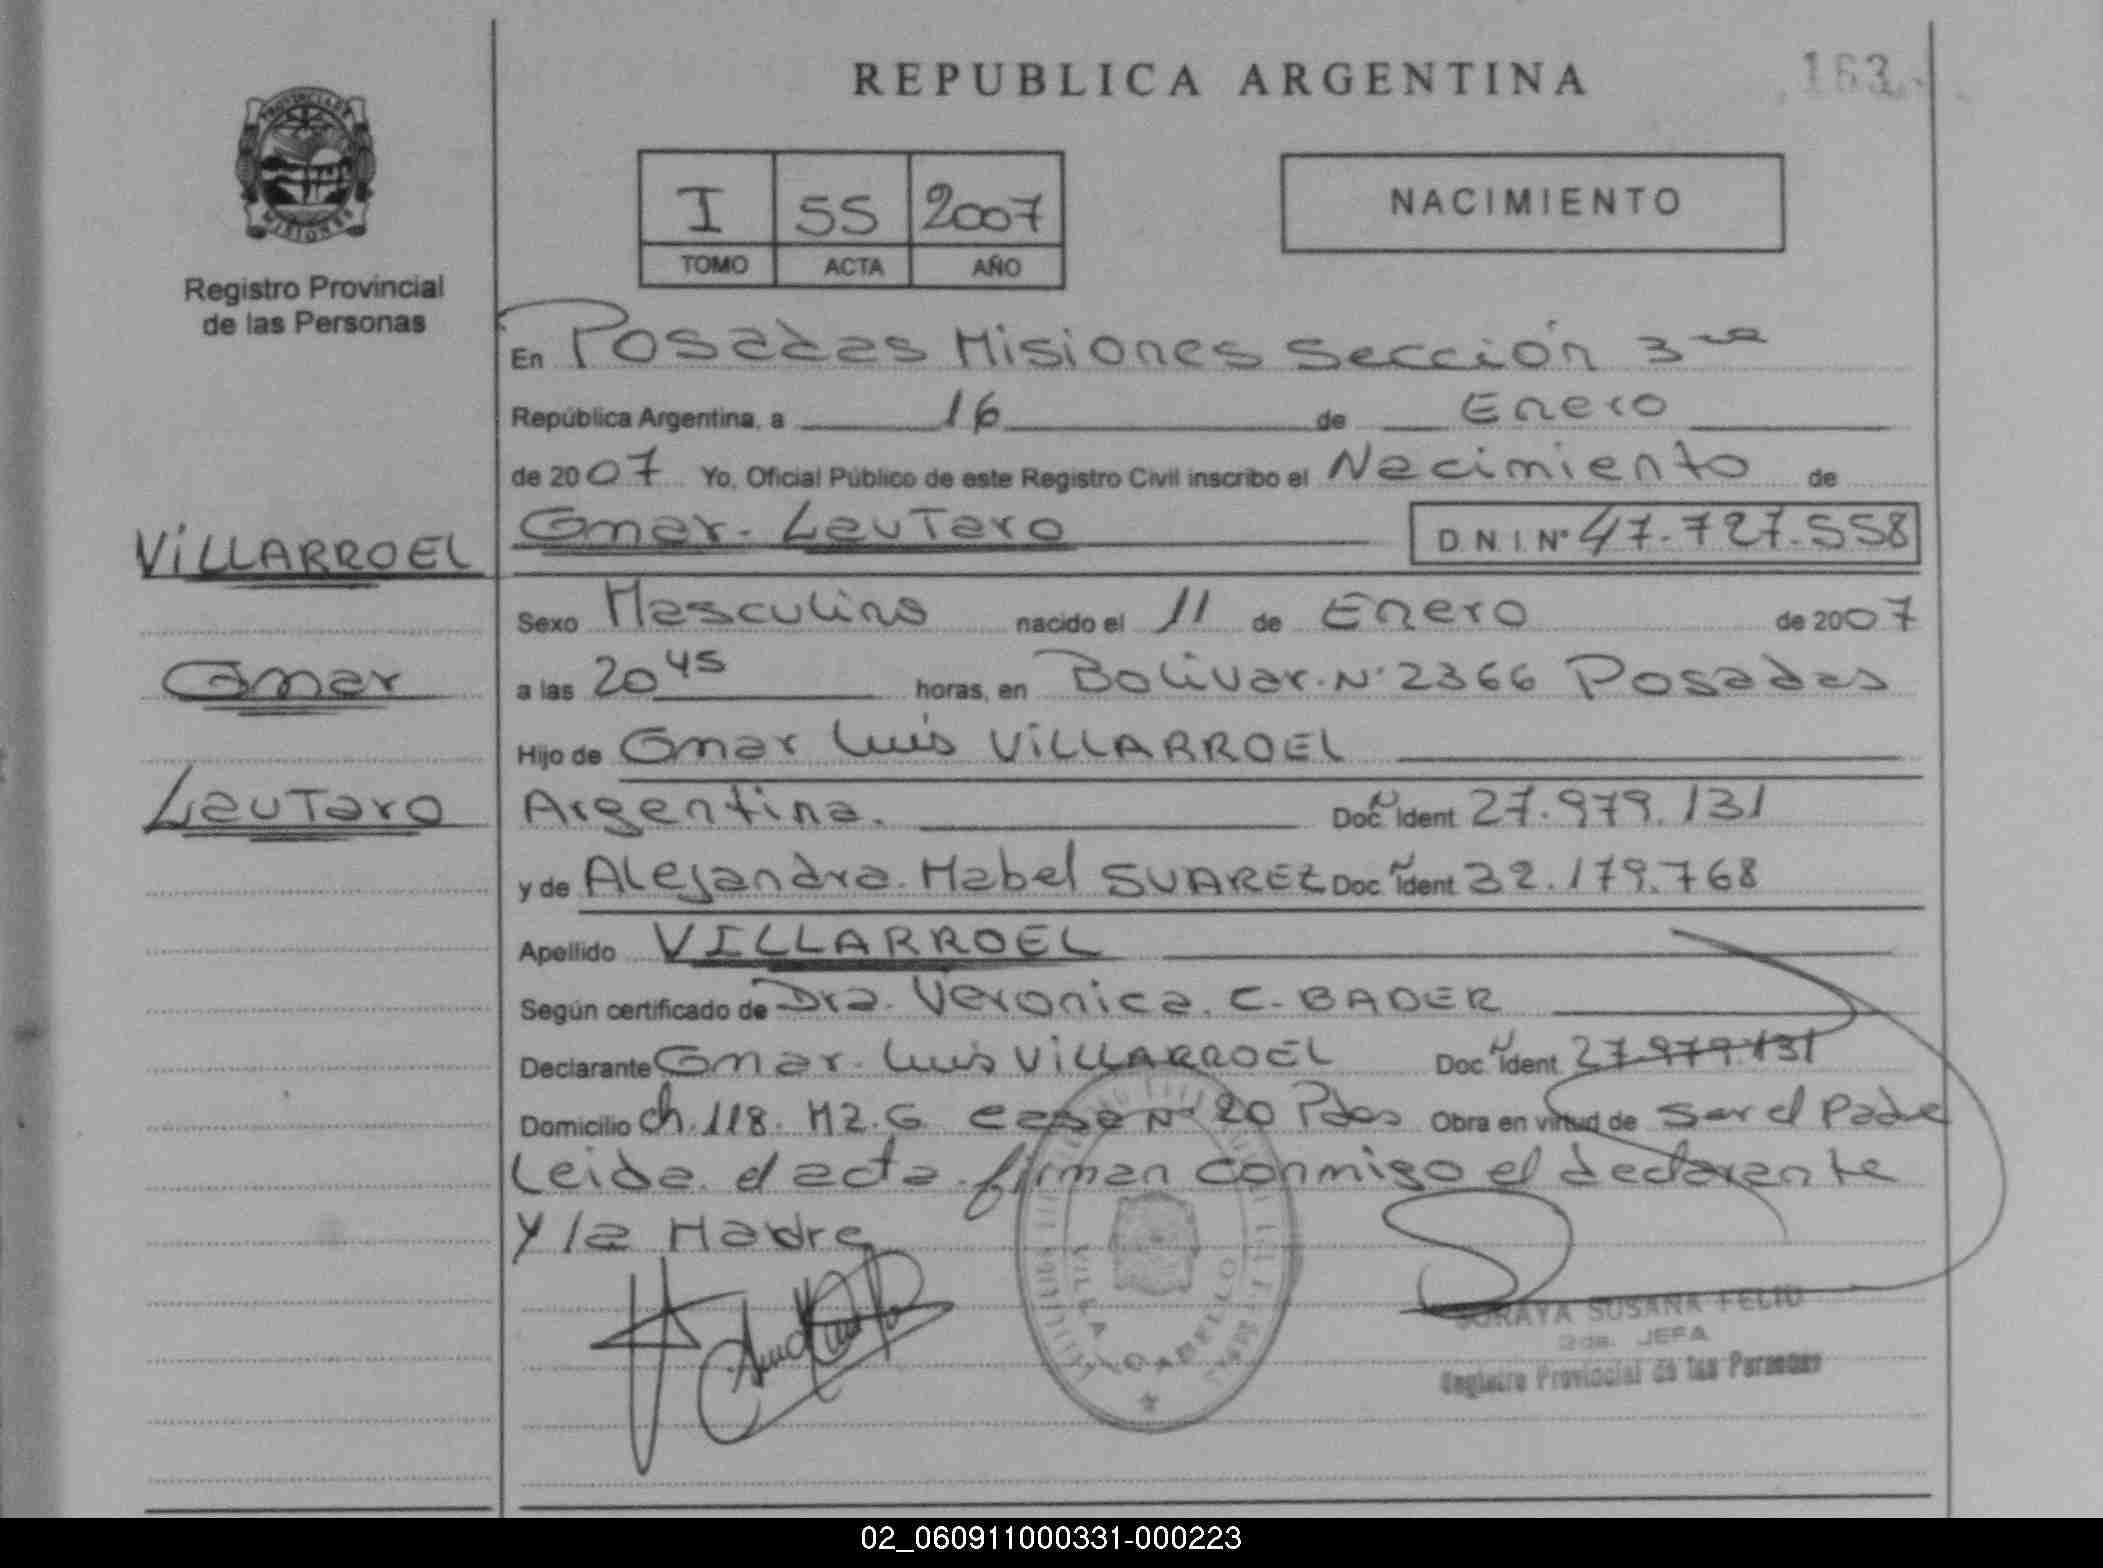 REPUBLICA ARGENTINA
163
PROVINCIA DE
MISIONES
Registro Provincial
de las Personas
I 55 2007
TOMO ACTA AÑO
NACIMIENTO
En Posadas Misiones Sección 3ra
República Argentina, a 16 de Enero
de 2007 Yo, Oficial Público de este Registro Civil inscribo el Nacimiento de
Omar. Lautaro D.N.I. N° 47.727.558
VILLARROEL
Omar
Lautaro
Sexo Masculino nacido el 11 de Enero de 2007
a las 20 45 horas, en Bolivar. N° 2366 Posadas
Hijo de Omar Luis VILLARROEL
Argentina. Doc. N Ident 27.979.131
y de Alejandra. Mabel SUAREZ Doc. N Ident 32.179.768
Apellido VILLARROEL
Según certificado de Dra. Veronica. C. BADER
Declarante Omar. Luis VILLARROEL Doc. N Ident. 27.979.131
Domicilio ch. 118. MZ. G casa N° 20 Pdas Obra en virtud de ser el Padre
Leida el acta firman conmigo el declarante
y la Madre
VILLA CABELLO
SORAYA SUSANA FELIU
2da. JEFA
Registro Provincial de las Personas
02_060911000331-000223